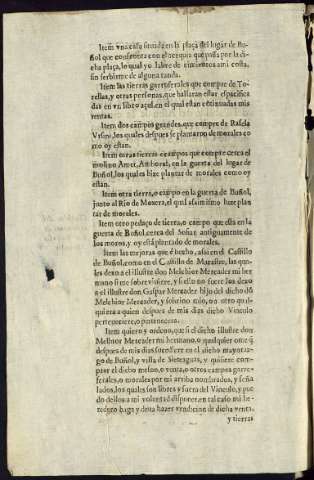 Item vna casa sitiada en la plaça del lugar de Bu-
ñol que confronta con el que passa por la di-
cha plaça, lo qual yo labre de cimientos a mi costa,
sin seruirme de alguna tanda.
Item las tierras garroferales que compre de To-
rellas, y otras personas, que hallaran estar especifica
das en vn libro açul, en el qual estan continuadas mis
rentas.
Item dos campos grandes, que compre de Rafela
Vrsini, los quales despues se plantaron de morales co
mo oy estan.
Item otras tierras o campos que compre cerca el
molino de Amet Amboral, en la guerta del lugar de
Buñol, los quales hize plantar de morales como oy
estan.
Item otra tierra, o campo en la guerta de Buñol,
junto al Rio de el qual assi mismo hize plan
tar de morales.
Item otro pedaço de tierra, o campo que esta en la
guerta de Buñol, cerca del antiguamente de
los moros, y oy está plantado de morales.
Item las mejoras que é hecho, assi en el Castillo
de Buñol, como en el Castillo de Macastre, las qua
les dexo a el illustre don Melchior Mercader mi her
mano si me sobreuiuiere, y si ello no fuere los dexo
a el illustre don Gaspar Mercader hijo del dicho dõ
Melchior Mercader, y sobrino mio, o a otro qual-
quiera a quien despues de mis dias dicho Vinculo
perteneciere, o pertenecera.
Item quiero y ordeno, que si el dicho illustre don
Melchior Mercader mi hermano, o qualquier otro q̃
despues de mis dias sucediere en el dicho mayoraz-
go de Buñol, y valla de Sieteaguas, y quisiere com-
prar el dicho meson, o venta, o otros campos garro-
ferales, o morales por mi arriba nombrados, y seña
lados, los quales son libres y fuera del Vinculo, y pue
do dellos a mi voluntad disponer, en tal caso mi he-
redero haga y deua hazer vendicion de dicha venta,
y tierras